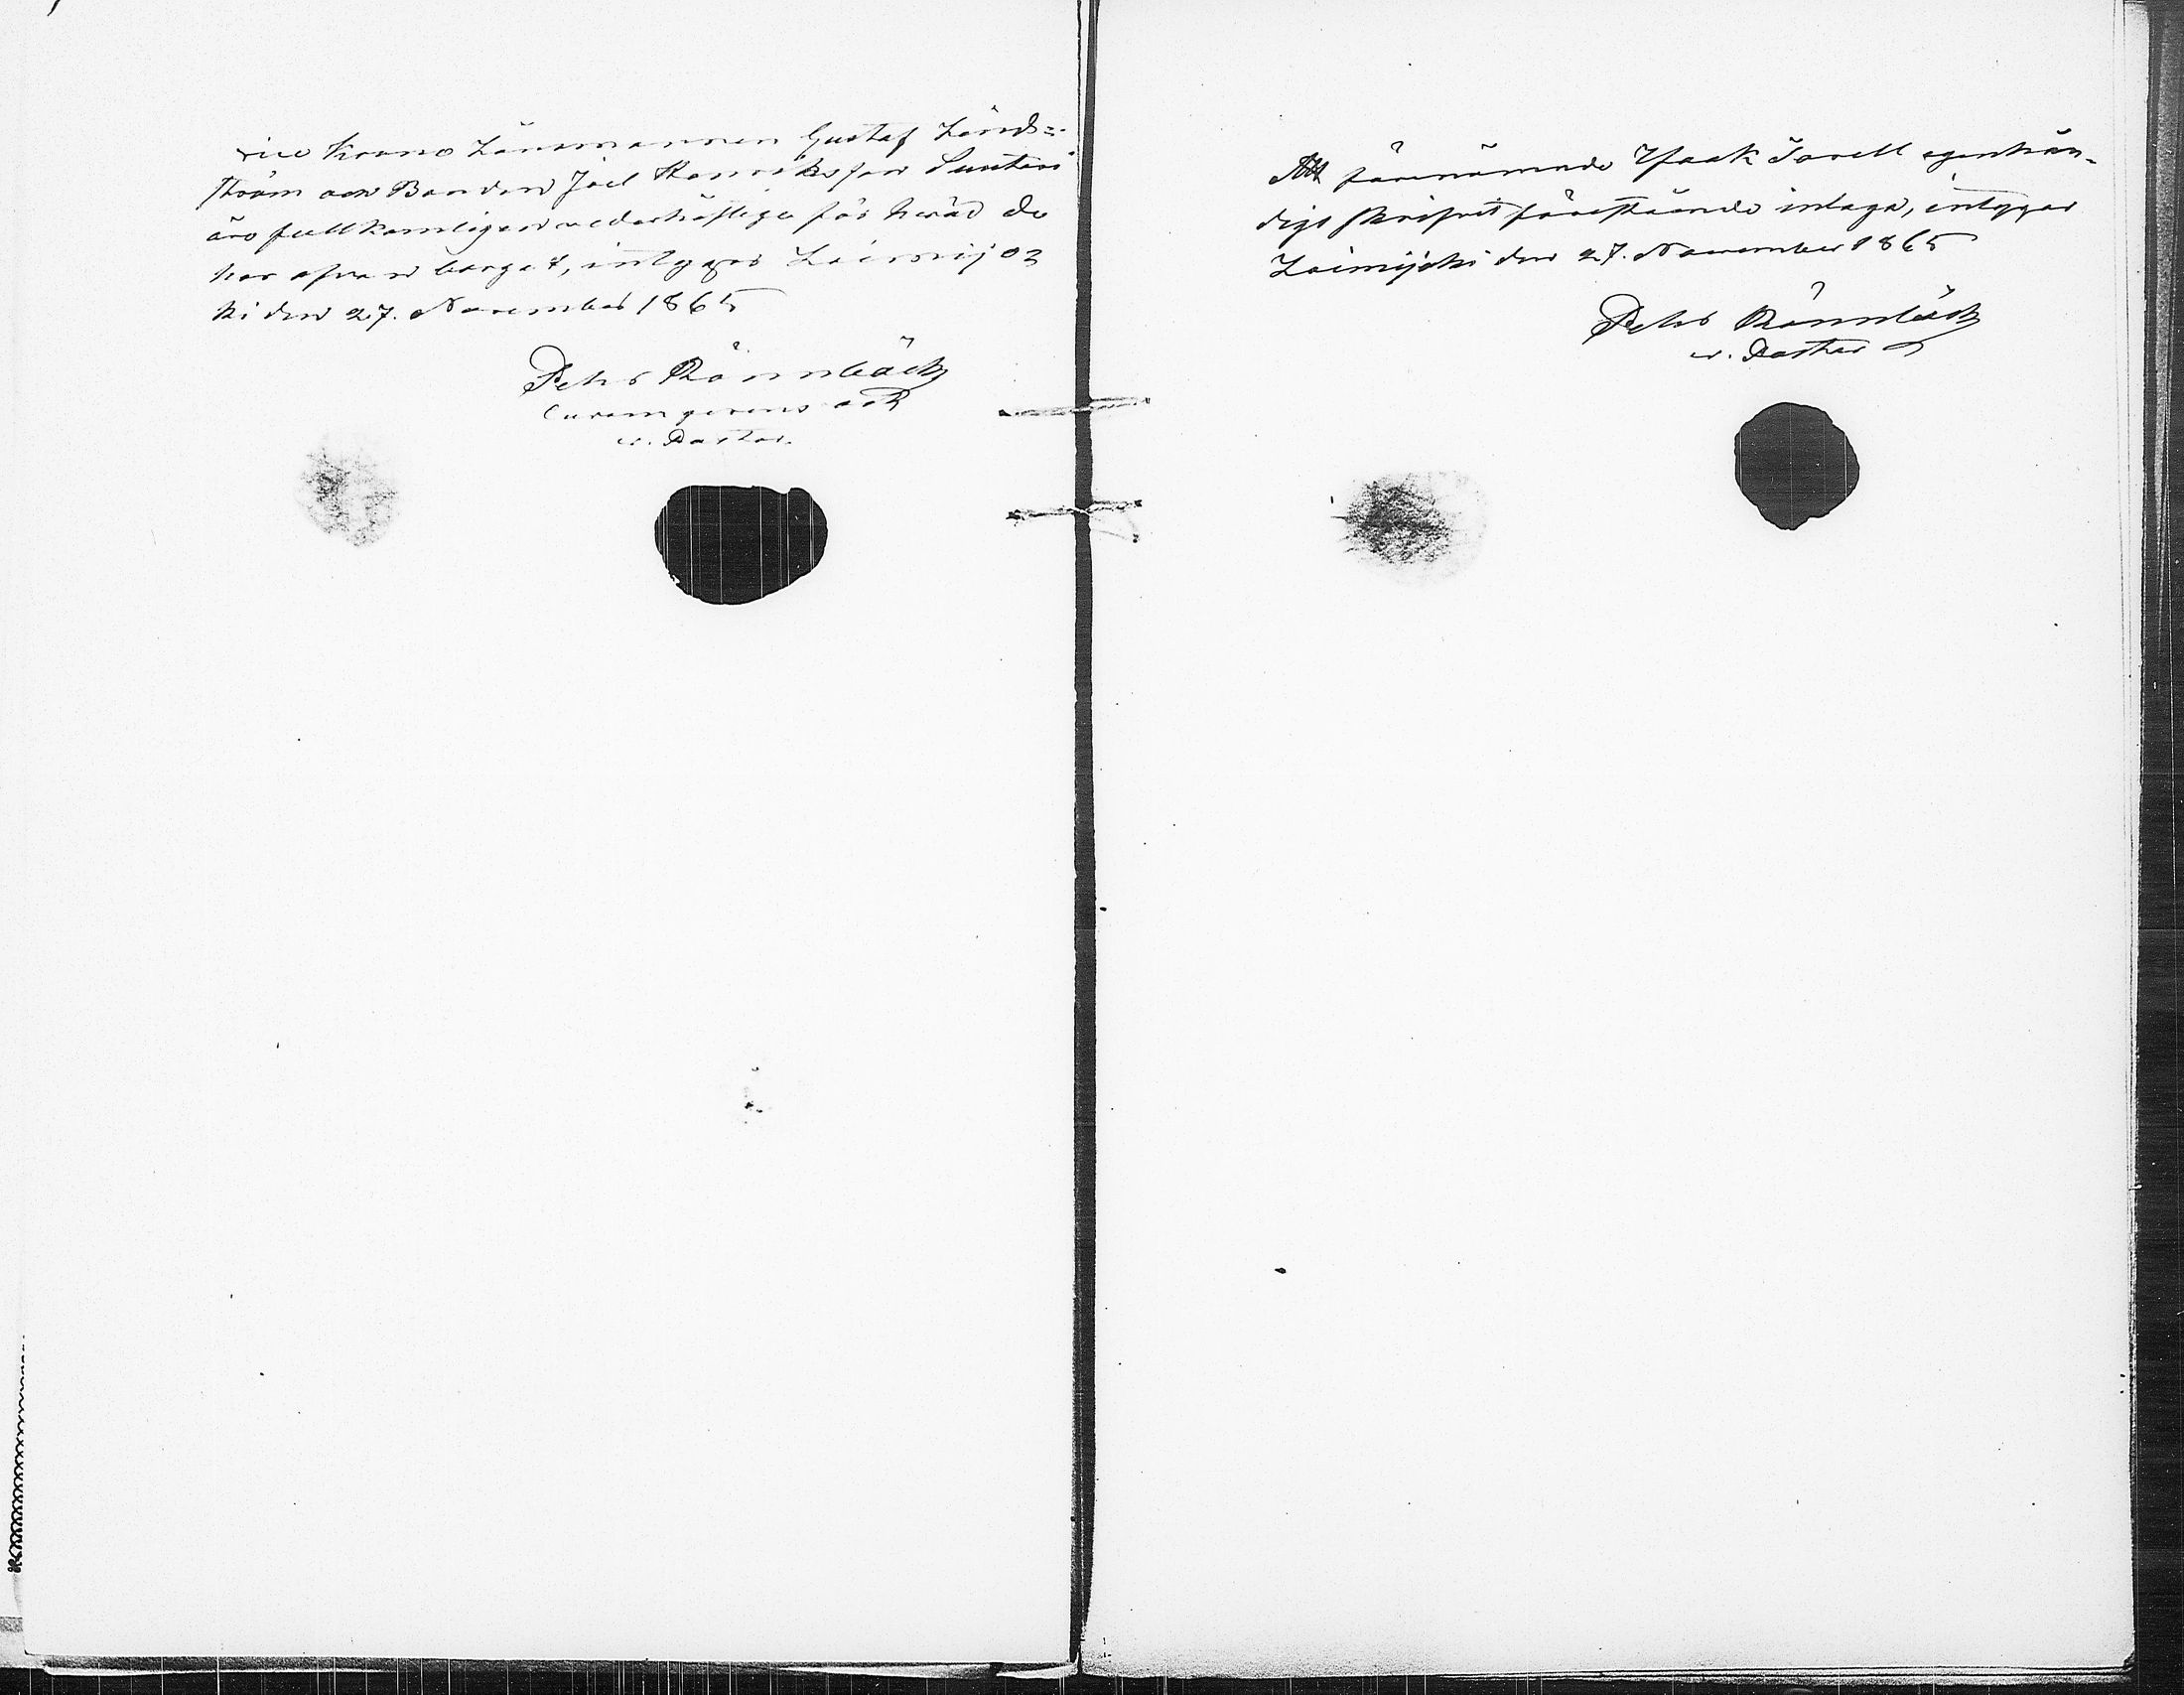 vice Krono Länsmannen Gustaf Länd=
ström och Bonden Joel Henriksson Suutari
äro fullkomligen vederhäftige för hvad de
har ofvan borgat, intygar Loimijo=
ki den 27. November 1865
Pehr Rönnbäck
curam gerens och
v. Pastor.
Att förenämnde Isaak Sarell egenhän-
digt skrifvit förestående inlaga, intygar
Loimijoki den 27. November 1865
Pehr Rönnbäck
v. Pastor